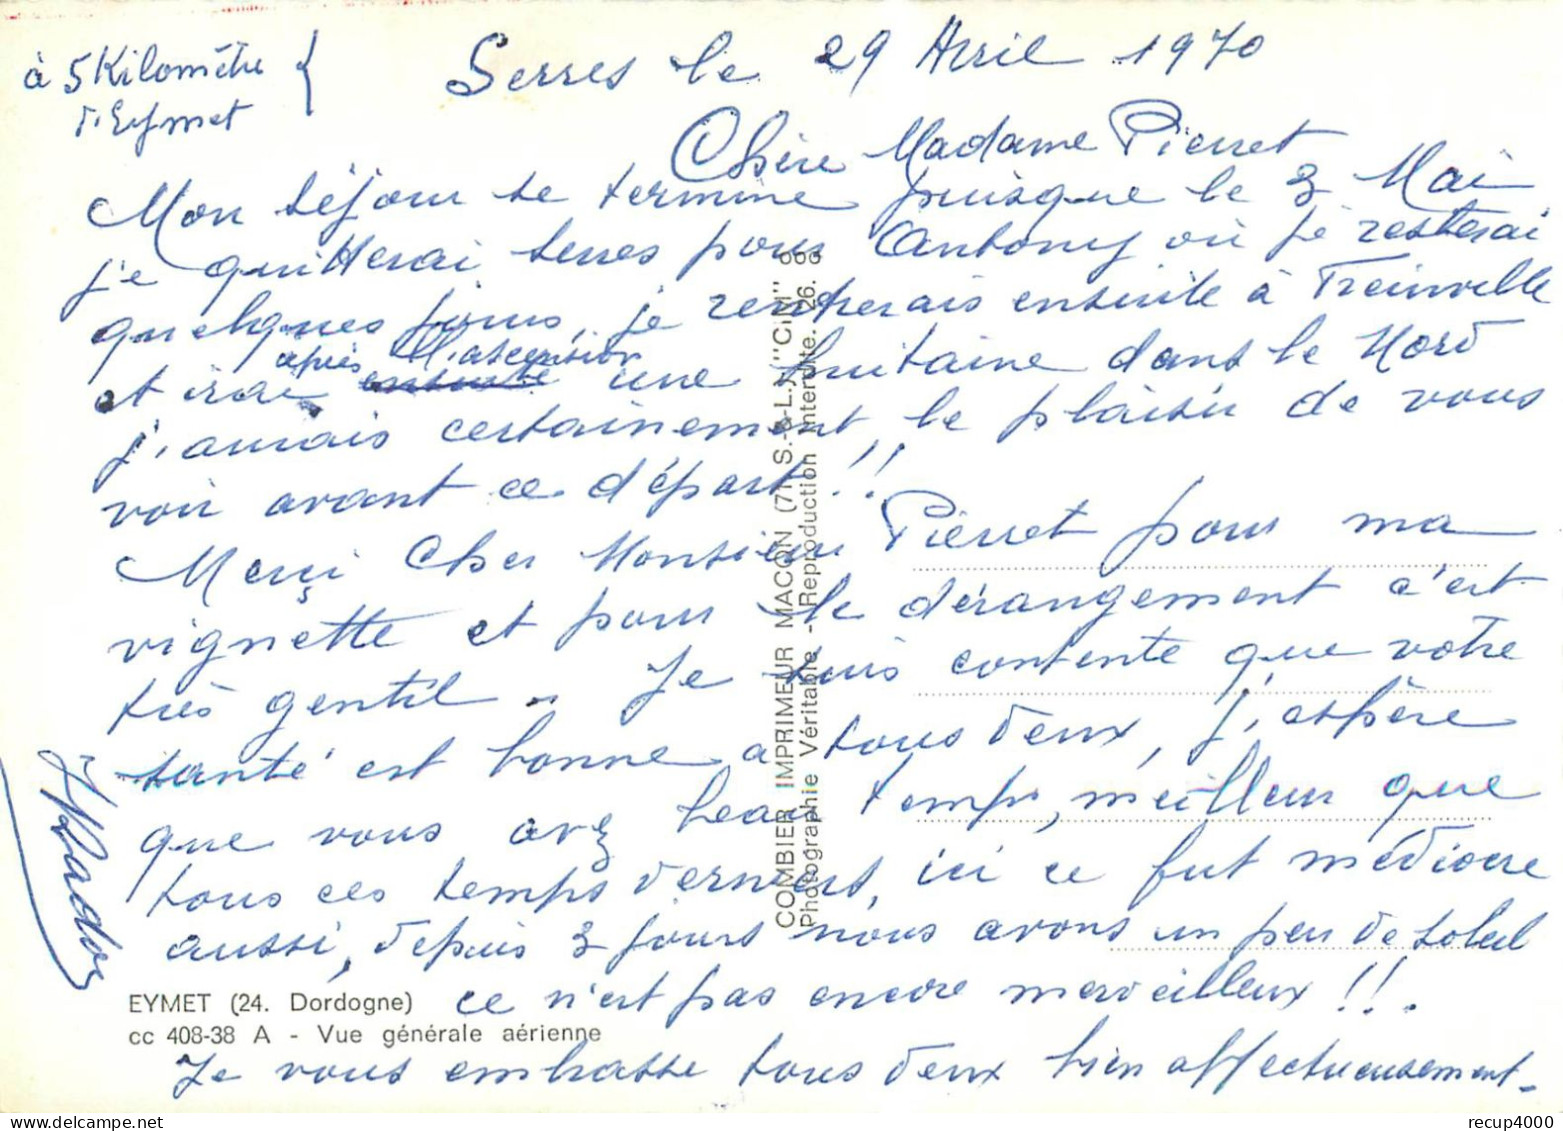 à 5 Kilomètre
d'Eymet
Serres le 29 Avril 1970
Chère Madame Pierret
Mon séjour se termine puisque le 3 Mai
je quitterai Serres pour Antony où je resterai
quelques jours, je rentrerais ensuite à Freinville
et irai après l'ascension ensuite une huitaine dans le Nord
j'aurais certainement, le plaisir de vous
voir avant ce départ !!
Merçi Cher Monsieur Pierret pour ma
vignette et pour le dérangement c'est
très gentil. Je suis contente que votre
santé est bonne a tous deux, j'espère
que vous avez beau temps, meilleur que
tous ces temps derniers, ici ce fut médiocre
aussi, depuis 3 jours nous avons un peu de soleil
ce n'est pas encore merveilleux !!.
Je vous embrasse tous deux bien affectueusement.
EYMET (24. Dordogne)
cc 408-38 A - Vue générale aérienne
COMBIER IMPRIMEUR MACON (71 S.-&-L.) "CIM"
Photographie Véritable - Reproduction Interdite.
recup4000